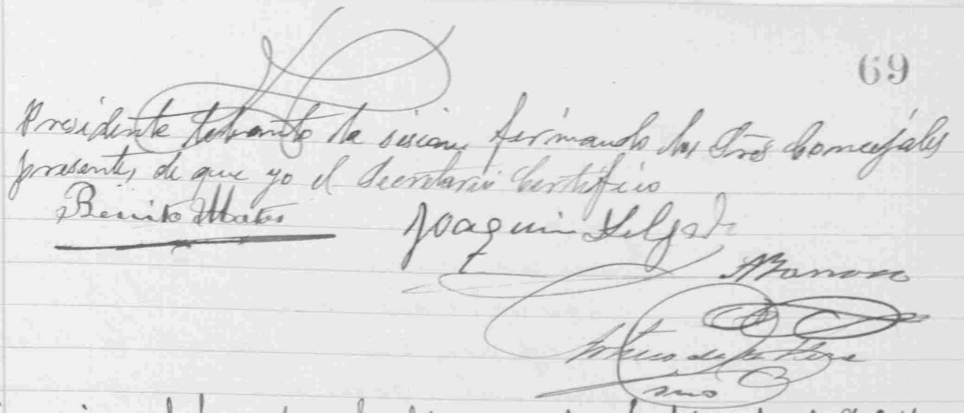 69
Presidente lebanto la sesion, firmando los Sres Concejales
presentes, de que yo el Secretario Certifico
Benito Mateo
Joaquin Delgado
A Barroso
de la